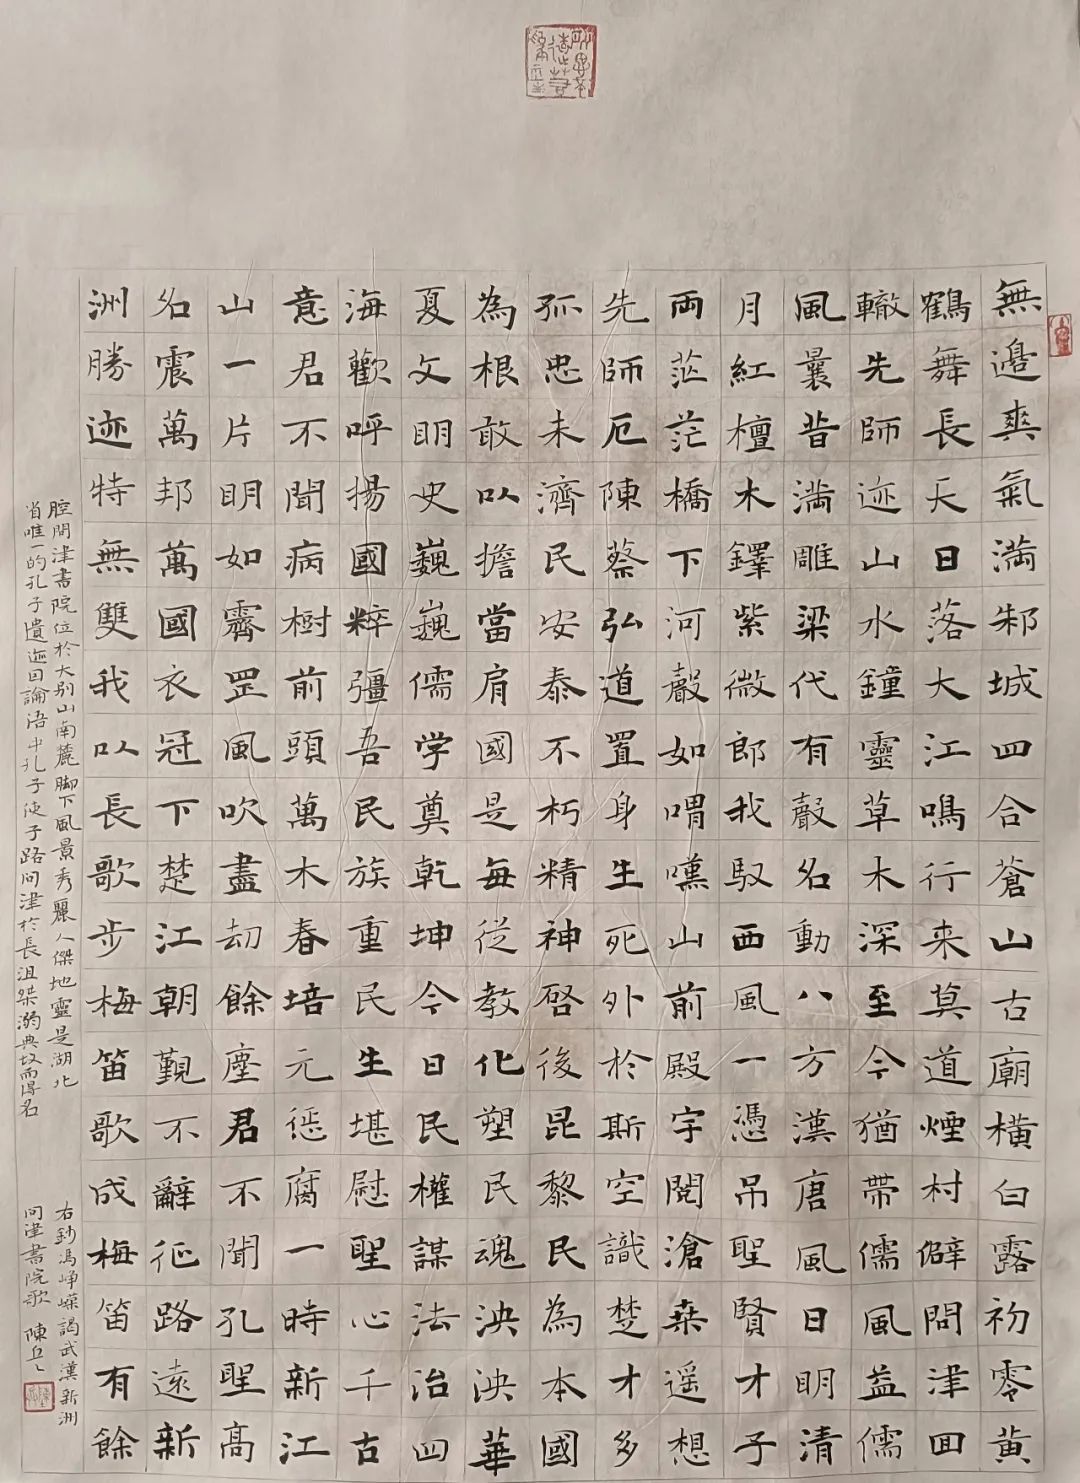 無邊爽氣滿邾城四合蒼山古廟橫白露初零黃
鶴舞長天日落大江鳴行来莫道煙村僻問津回
轍先師迹山水鐘靈草木深至今猶帶儒風益儒
風曩昔満雕梁代有聲名動八方漢唐風日明清
月紅檀木鐸紫微郎我馭西風一憑吊聖賢才子
兩茫茫橋下河聲如喟嘆山前殿宇閱滄桑遥想
先師厄陳蔡弘道置身生死外於斯空識楚才多
孤忠未濟民安泰不朽精神啓後昆黎民為本國
為根敢以擔當肩國是每從教化塑民魂泱泱華
夏文明史巍巍儒学奠乾坤今日民權謀法治四
海歡呼揚國粹彊吾民族重民生堪慰聖心千古
意君不聞病樹前頭萬木春培元懲腐一時新江
山一片明如霽罡風吹盡劫餘塵君不聞孔聖高
名震萬邦萬國衣冠下楚江朝覲不辭征路遠新
洲勝迹特無雙我以長歌步梅笛歌成梅笛有餘
腔問津書院位於大别山南麓脚下風景秀麗人傑地靈是湖北
省唯一的孔子遺迹因論語中孔子使子路問津於長沮桀溺典故而得名
右鈔馮崢嶸謁武漢新洲
問津書院歌 陳